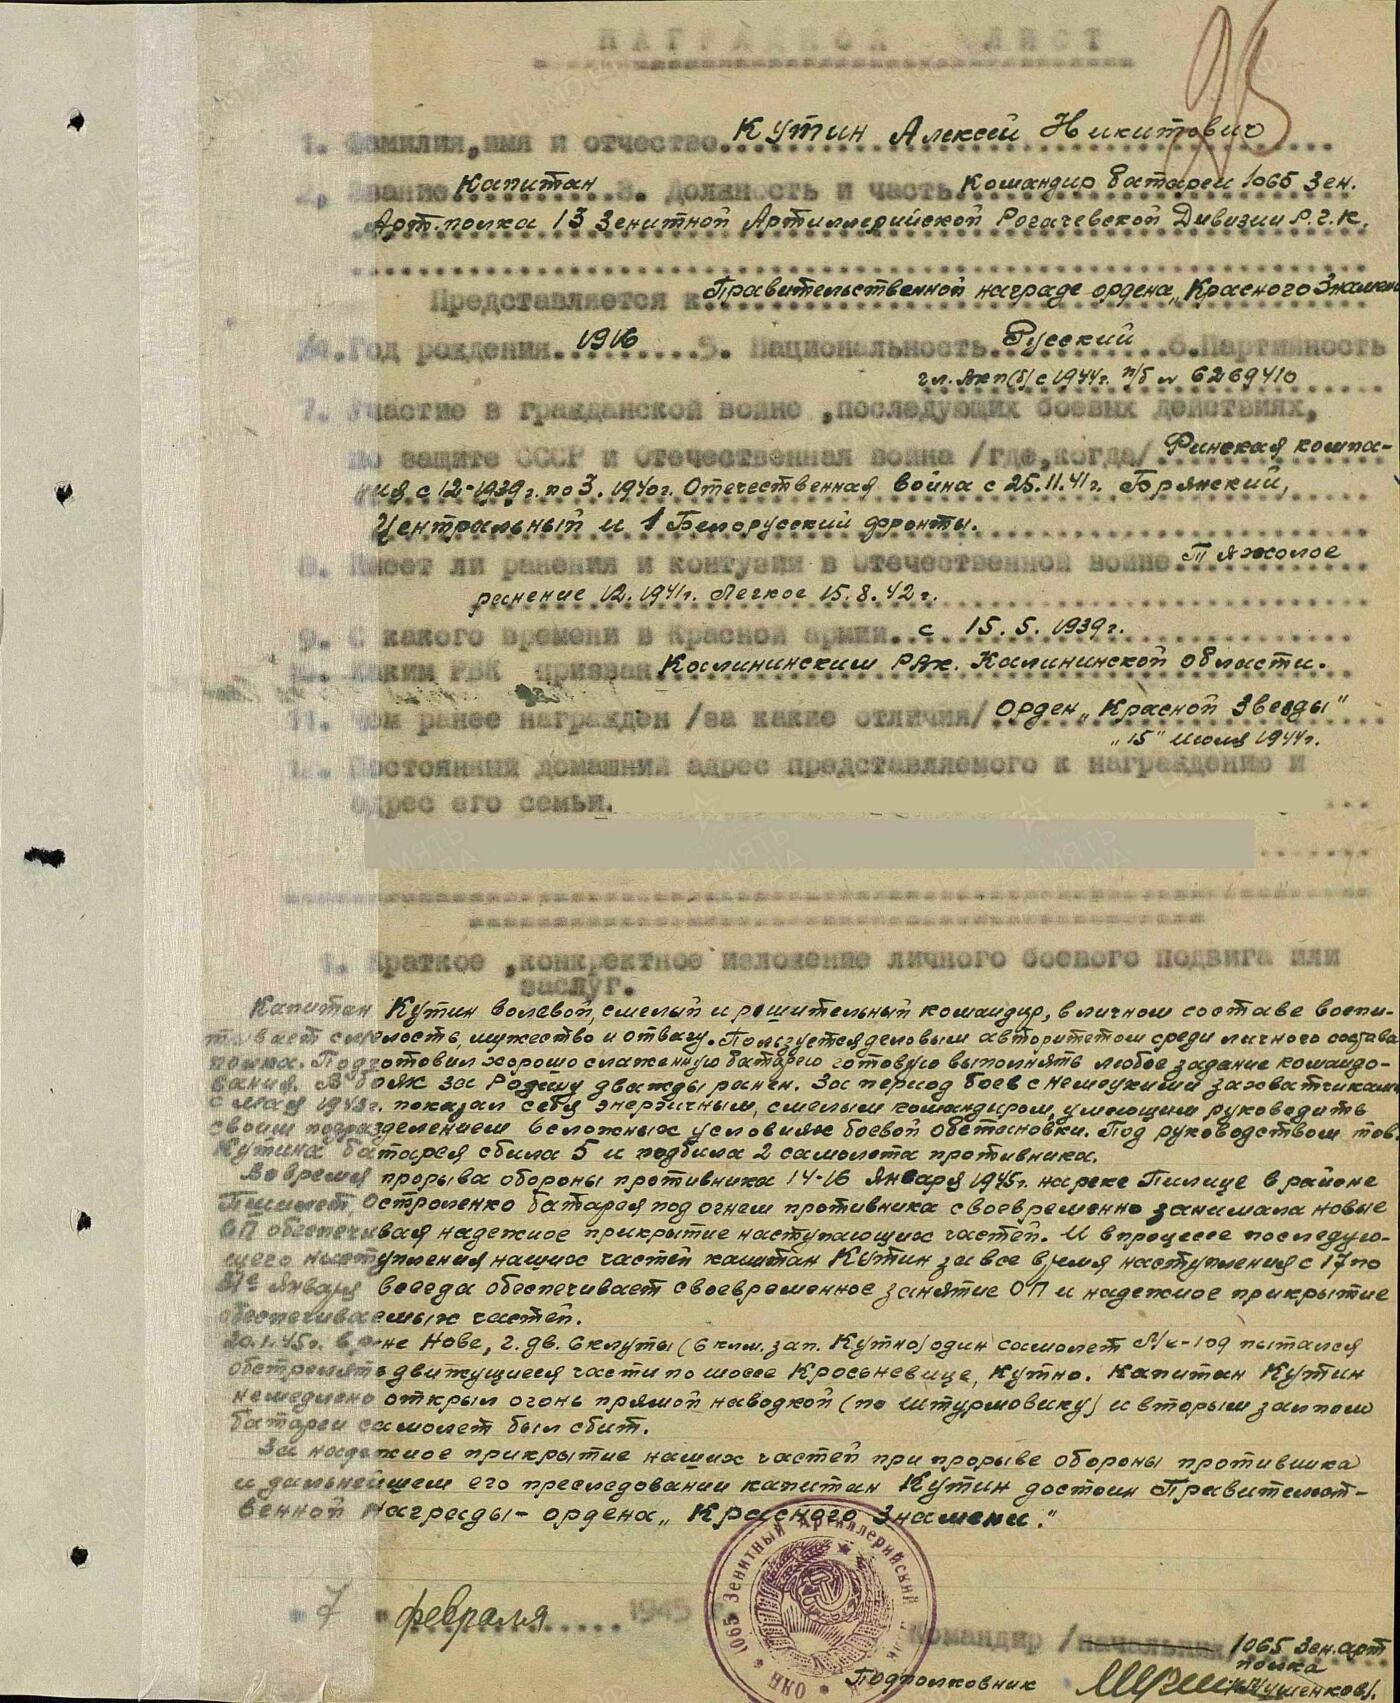 НАГРАДНОЙ ЛИСТ
1. Фамилия, имя и отчество Кутин Алексей Никитович
2. Звание Капитан 3. Должность и часть Командир батареи 1065 Зен.
Арт. полка 13 Зенитной Артиллерийской Рогачевской Дивизии Р.Г.К.
Представляется к Правительственной награде ордена „Красного Знамени
4. Год рождения 1916 5. Национальность Русский 6. Партийность
чл. ВКП(б) с 1944г. п/б № 6269410
7. Участие в гражданской войне, последующих боевых действиях,
по защите СССР и Отечественная война /где, когда/ Финская компа-
ния с 12-1939г. по 3.1940г. Отечественная война с 25.11.41г. Брянский,
Центральный и 1 Белорусский фронты.
8. Имеет ли ранения и контузии в Отечественной войне Тяжолое
ранение 12.1941г. Легкое 15.8.42г.
9. С какого времени в Красной армии с 15.5.1939г.
10. Каким РВК призван Калининским РВК. Калининской области.
11. Чем ранее награжден /за какие отличия/ Орден „Красной Звезды"
„15" июля 1944г.
12. Постоянный домашний адрес представляемого к награждению и
адрес его семьи.
1. Краткое, конкретное изложение личного боевого подвига или
заслуг.
Капитан Кутин волевой, смелый и решительный командир, в личном составе воспи-
тывает смелость, мужество и отвагу. Пользуется деловым авторитетом среди личного состава
полка. Подготовил хорошо слаженную батарею готовую выполнять любое задание командо-
вания. В боях за Родину дважды ранен. За период боев с немецкими захватчиками
с мая 1943г. показал себя энергичным, смелым командиром, умеющим руководить
своим подразделением в сложных условиях боевой обстановки. Под руководством тов.
Кутина батарея сбила 5 и подбила 2 самолета противника.
Во время прорыва обороны противника 14-16 Января 1945г. на реке Пилице в районе
Остроленко батарея под огнем противника своевременно занимала новые
ОП обеспечивая надежное прикрытие наступающих частей. И в процессе последую-
щего наступления наших частей капитан Кутин за все время наступления с 17 по
31е Января всегда обеспечивает своевременное занятие ОП и надежное прикрытие
обеспечиваемых частей.
20.1.45г. в р-не Нове, г. дв. Склуты (6 клм. зап. Кутно) один самолет Ме-109 пытался
обстрелять движущиеся части по шоссе Кросьневице, Кутно. Капитан Кутин
немедленно открыл огонь прямой наводкой (по штурмовику) и вторым залпом
батареи самолет был сбит.
За надежное прикрытие наших частей при прорыве обороны противника
и дальнейшем его преследовании капитан Кутин достоин Правительст-
венной награды - ордена „Красного Знамени."
7 февраля 1945
1065 Зенитный Артиллерийский полк НКО
Командир /начальник/ 1065 Зен. арт
полка
Подполковник /Мушенков/.